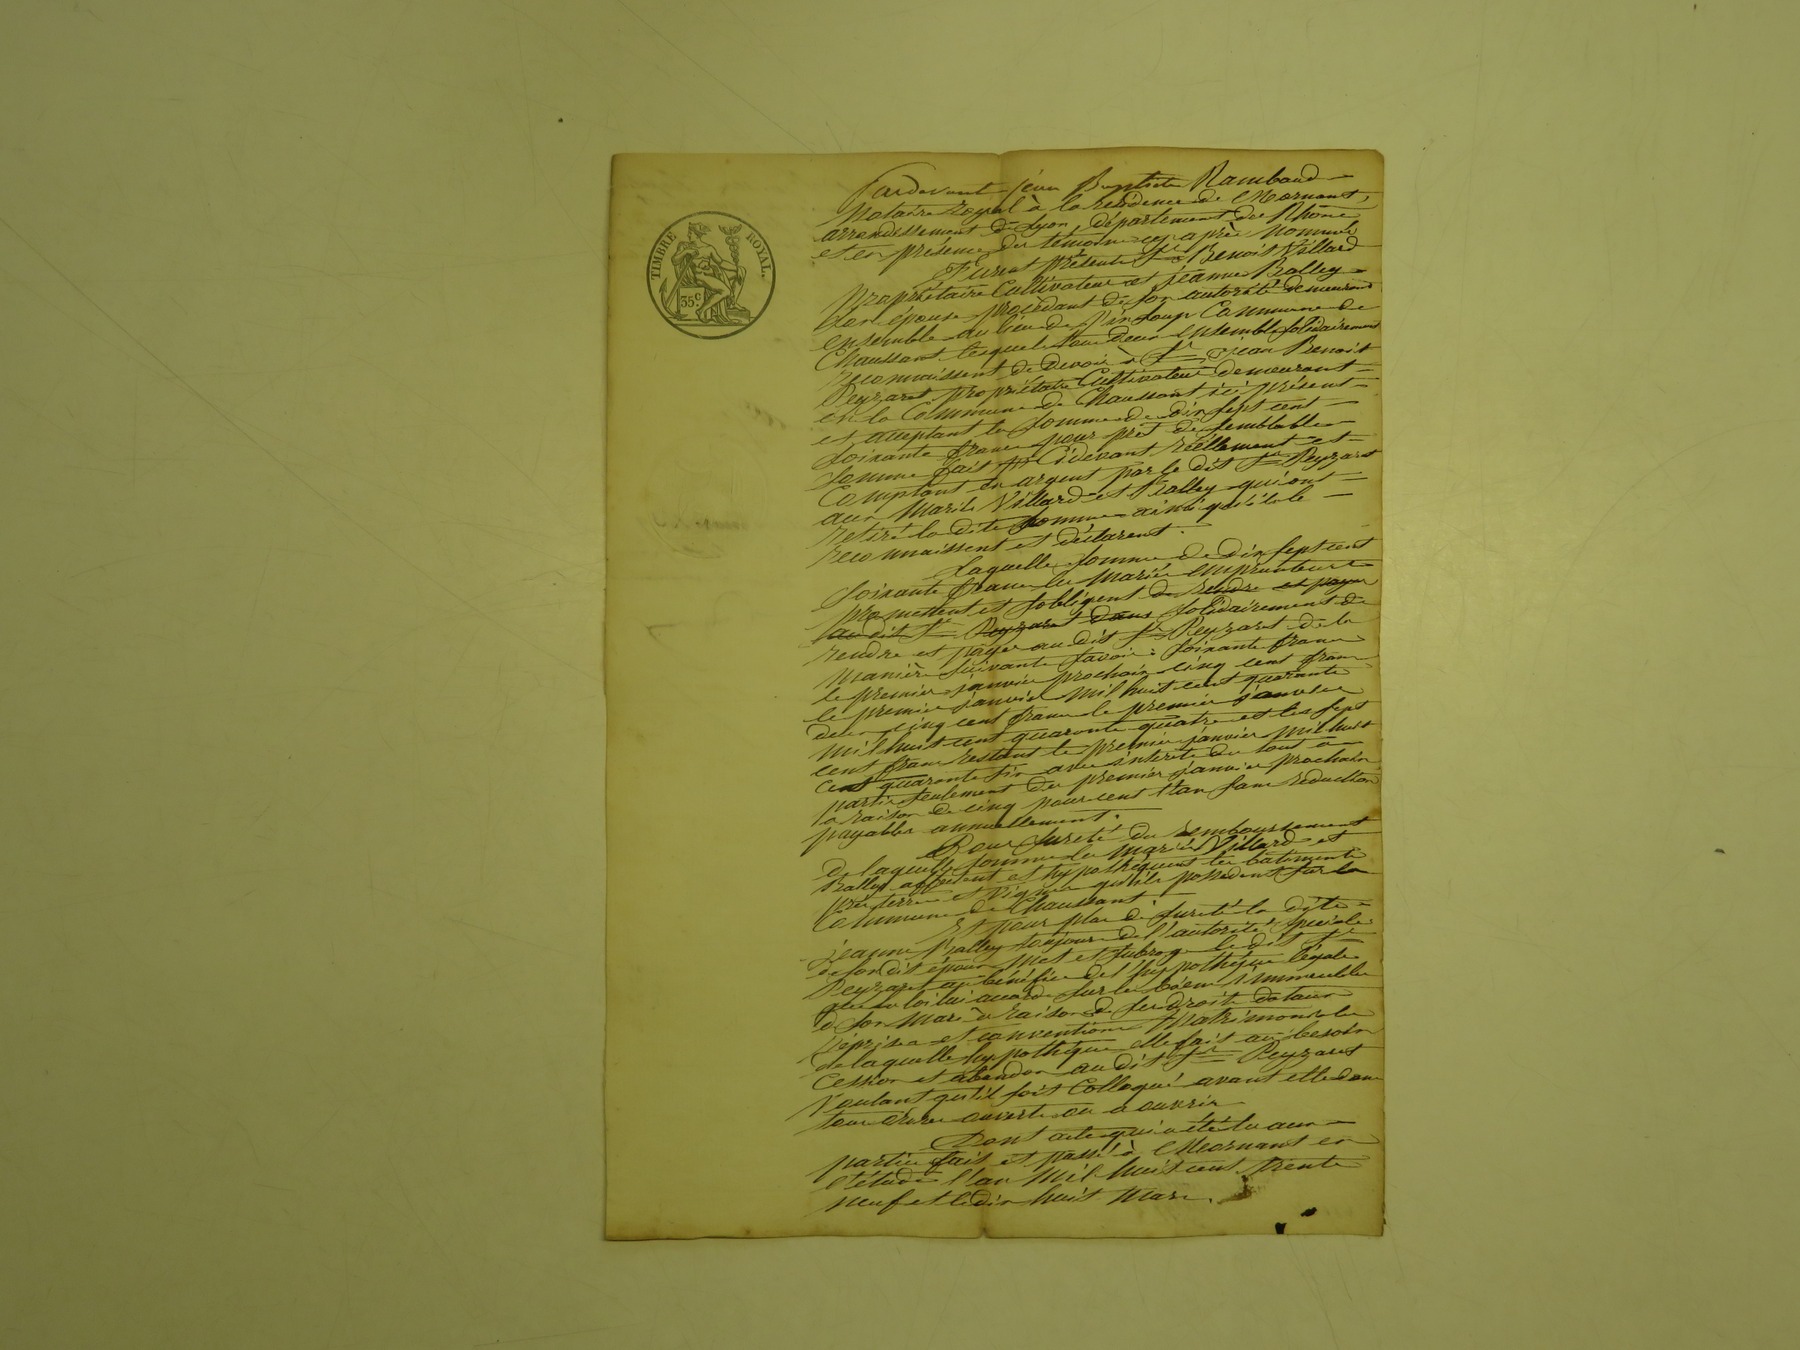 TIMBRE ROYAL.
35 c.
Pardevant jean Baptiste Rambaud
Notaire royal à la residence de Mornant,
arrondissement de Lyon, département du Rhône
et en présence des témoins cy après nommés
Furent présents Sr Benoit Villard
propriétaire Cultivateur et jeanne Ralley
son épouse procédant de son autorité demeurant
ensemble au lieu de Commune de
Chaussant lesquels tous deux ensemble solidairement
reconnaissent de devoir à Sr jean Benoit
Peyzaret propriétaire Cultivateur demeurant
en la Commune de Chaussant ici présent
et acceptant la somme de dix sept cent
soixante francs pour prêt de semblable
somme fait Cidevant réellement et
Comptant en argent par le dit Sr Peyzaret
aux Mariés Villard et Ralley qui ont
retiré la dite somme ainsi qu'ils le
reconnaissent et déclarent.
Laquelle somme de dix sept cent
soixante francs les mariés emprunteurs
promettent et s'obligent de rendre et payer
au dit Sr Peyzaret dans solidairement de
rendre et payer au dit Sr Peyzaret de la
manière suivante savoir : soixante francs
le premier janvier prochain cinq cent francs
le premier janvier mil huit cent quarante
deux cinq cent francs le premier janvier
mil huit cent quarante quatre et les sept
cent francs restant le premier janvier mil huit
cent quarante six avec intérêts du tout à
partir seulement du premier janvier prochain
la raison de cinq pour cent l'an sans réduction
payables annuellement.
Pour sureté du remboursement
de laquelle somme les mariés Villard et
Ralley affectent et hypothèquent les bâtiments
prés terres et vignes qu'ils possèdent sur la
Commune de Chaussant.
Et pour plus de sureté la dite
jeanne Ralley toujours de l'autorité spéciale
de son dit époux met et subroge le dit Sr
Peyzaret au bénéfice de l'hypothèque légale
que la loi lui accorde sur les biens immeubles
de son mari à raison de ses droits dotaux
reprises et conventions Matrimoniales
de laquelle hypothèque elle fait au besoin
Cession et abandon au dit Sr Peyzaret
Voulant qu'il soit Colloqué avant elle dans
tous ordres ouverts ou à ouvrir
Dont acte qui a été lu aux
parties fait et passé à Mornant en
l'étude l'an Mil huit cent trente
neuf et le dix huit Mars.